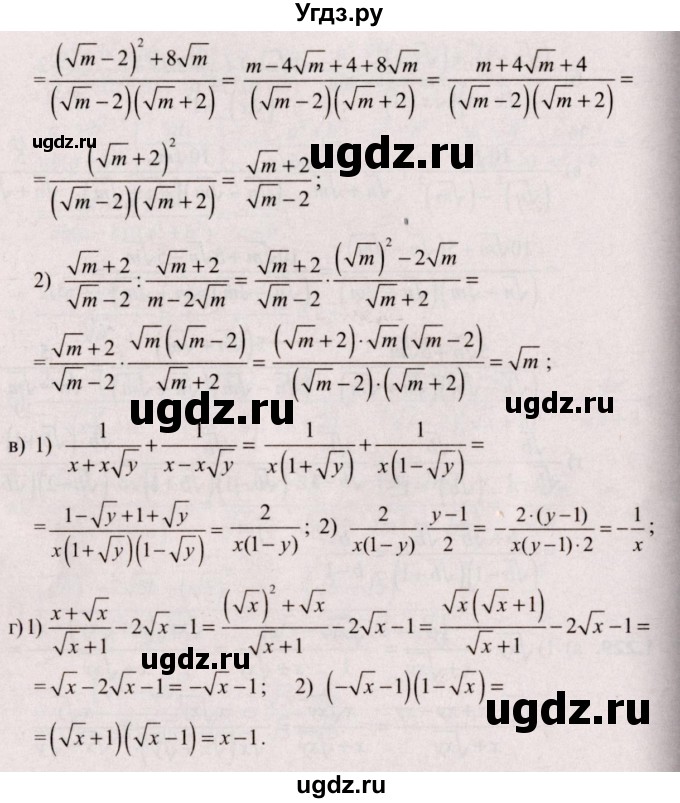 Угдз.ру
= ((√m − 2)² + 8√m) / ((√m − 2)(√m + 2)) = (m − 4√m + 4 + 8√m) / ((√m − 2)(√m + 2)) = (m + 4√m + 4) / ((√m − 2)(√m + 2)) =
ugdz.ru
ugdz.ru
= (√m + 2)² / ((√m − 2)(√m + 2)) = (√m + 2) / (√m − 2);
2) (√m + 2) / (√m − 2) : (√m + 2) / (m − 2√m) = (√m + 2) / (√m − 2) · ((√m)² − 2√m) / (√m + 2) =
= (√m + 2) / (√m − 2) · √m(√m − 2) / (√m + 2) = ((√m + 2) · √m(√m − 2)) / ((√m − 2) · (√m + 2)) = √m ;
ugdz.ru
ugdz.ru
в) 1) 1 / (x + x√y) + 1 / (x − x√y) = 1 / (x(1 + √y)) + 1 / (x(1 − √y)) =
= (1 − √y + 1 + √y) / (x(1 + √y)(1 − √y)) = 2 / (x(1 − y)) ; 2) 2 / (x(1 − y)) · (y − 1) / 2 = − (2 · (y − 1)) / (x(y − 1) · 2) = − 1 / x ;
г) 1) (x + √x) / (√x + 1) − 2√x − 1 = ((√x)² + √x) / (√x + 1) − 2√x − 1 = √x(√x + 1) / (√x + 1) − 2√x − 1 =
ugdz.ru
= √x − 2√x − 1 = −√x − 1; 2) (−√x − 1)(1 − √x) =
ugdz.ru
= (√x + 1)(√x − 1) = x − 1.
ugdz.ru